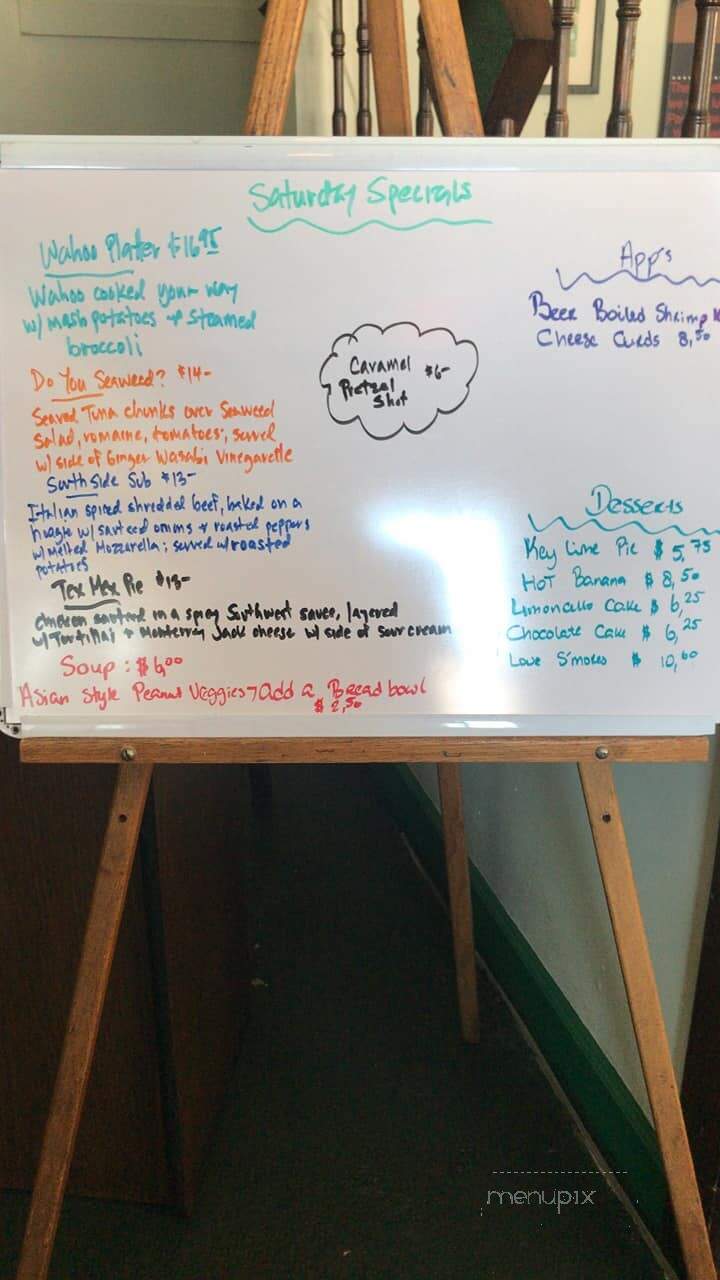 Saturday Specials
Wahoo Platter $16.95
Wahoo cooked your way
w/ mash potatoes + Steamed
broccoli
Do You Seaweed? $14-
Seared Tuna chunks over Seaweed
Salad, romaine, tomatoes, served
w/ side of Ginger Wasabi Vinegarette
South Side Sub $13-
Italian spiced shredded beef, baked on a
hoagie w/ sauteed onions + roasted peppers
w/ melted Mozzarella; served w/ roasted
potatoes
Tex Mex Pie $13-
chicken sauteed in a spicy Southwest sauce, layered
w/ Tortillas + Monterrey Jack cheese w/ side of sour cream
Soup: $6.00
Asian Style Peanut Veggies → Add a Bread bowl
$2,50
Caramel
Pretzel $6-
Shot
App's
Beer Boiled Shrimp
Cheese Curds 8,50
Desserts
Key Lime Pie $5,75
HOT Banana $8,50
Limoncello Cake $6,25
Chocolate Cake $6,25
Love S'mores $10,60
menupix